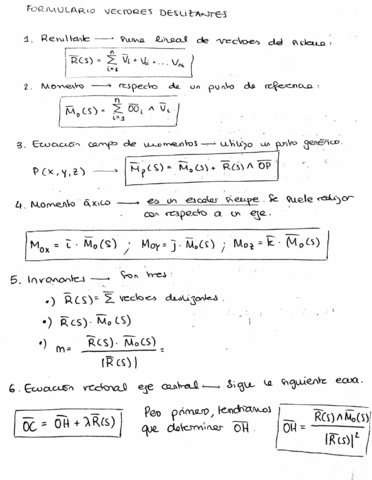 FORMULARIO VECTORES DESLIZANTES
1. Resultante → suma lineal de vectores del sistema:
R̄(S) = Σ(i=1, n) V̄i = V1 + V2 + ... Vn
2. Momento → respecto de un punto de referencia:
M̄o(S) = Σ(i=1, n) ŌOi ∧ V̄i
3. Ecuación campo de momentos → utilizo un punto genérico.
P(x,y,z) → M̄p(S) = M̄o(S) + R̄(S) ∧ ŌP
4. Momento áxico → es un escalar siempre. Se suele realizar
con respecto a un eje.
Mox = ī · M̄o(S) ; Moy = j̄ · M̄o(S) ; Moz = k̄ · M̄o(S)
5. Invariantes → Son tres:
•) R̄(S) = Σ vectores deslizantes.
•) R̄(S) · M̄o(S)
•) m = R̄(S) · M̄o(S) / |R̄(S)| =
6. Ecuación vectorial eje central → Sigue la siguiente ecua.
ŌC = ŌH + λR̄(S)
Pero primero, tendríamos
que determinar ŌH.
ŌH = R̄(S) ∧ M̄o(S) / |R̄(S)|²